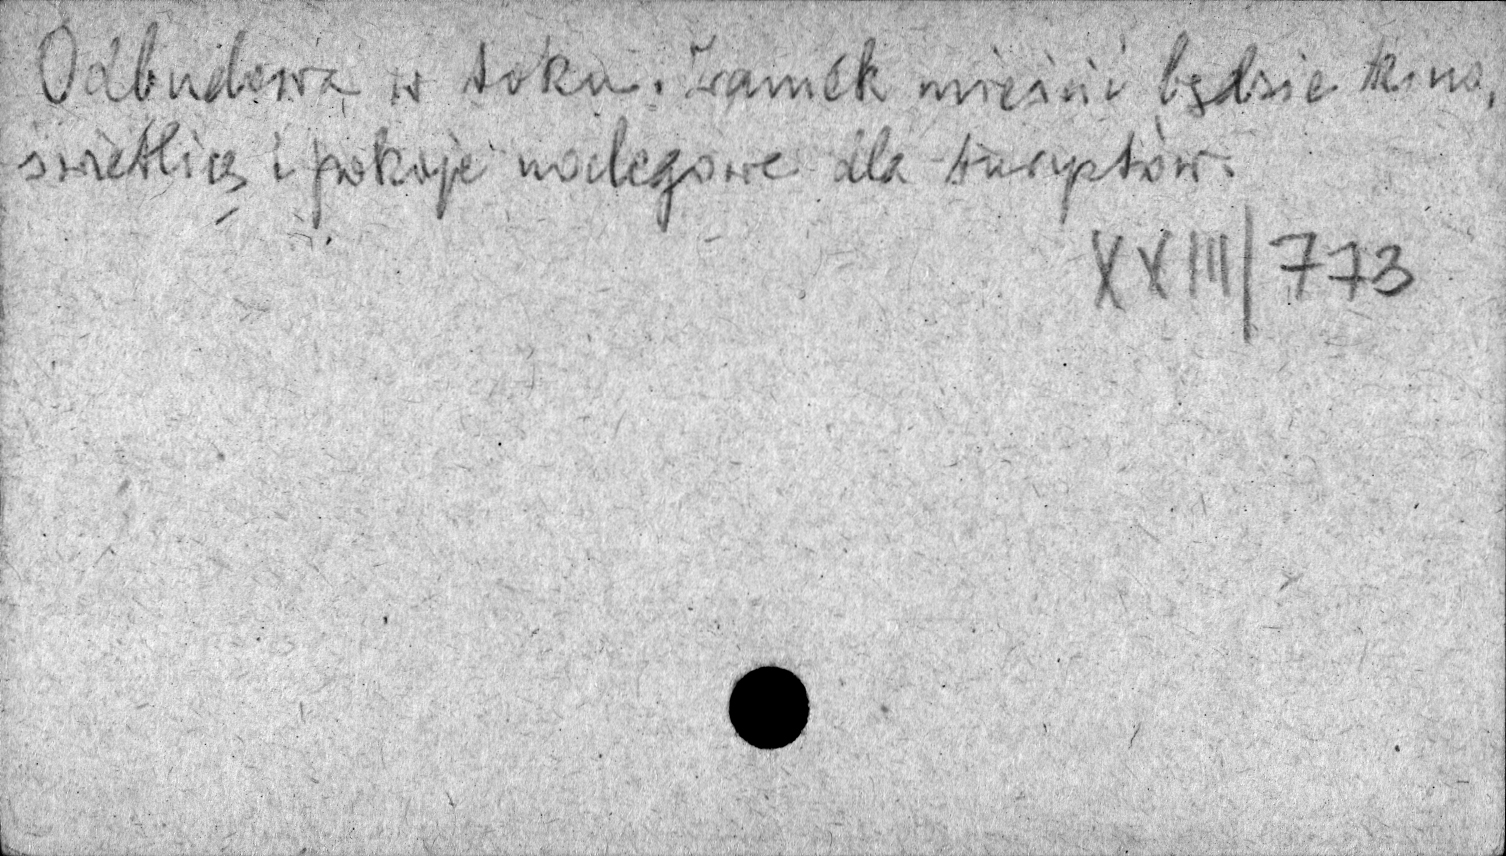 Odbudowa w toku. Zamek mieścić będzie kino,
świetlicę i pokoje noclegowe dla turystów.
XXIII/773